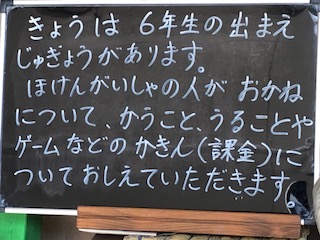 きょうは 6年生の出まえ
じゅぎょうがあります。
ほけんがいしゃの人が おかね
について、かうこと、うることや
ゲームなどの かきん(課金)に
ついておしえていただきます。